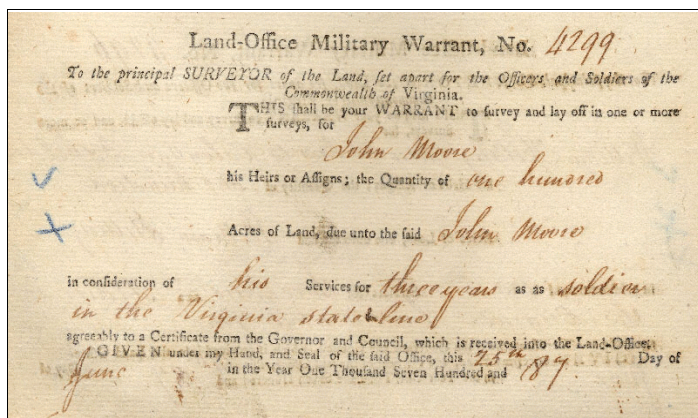 Land-Office Military Warrant, No. 4299
To the principal SURVEYOR of the Land, set apart for the Officers and Soldiers of the
Commonwealth of Virginia.
THIS shall be your WARRANT to survey and lay off in one or more
surveys, for
John Moore
his Heirs or Assigns; the Quantity of one hundred
Acres of Land, due unto the said John Moore
in consideration of his Services for three years as as soldier
in the Virginia state line
agreeably to a Certificate from the Governor and Council, which is received into the Land-Office.
GIVEN under my Hand, and Seal of the said Office, this 25th Day of
June in the Year One Thousand Seven Hundred and 87.